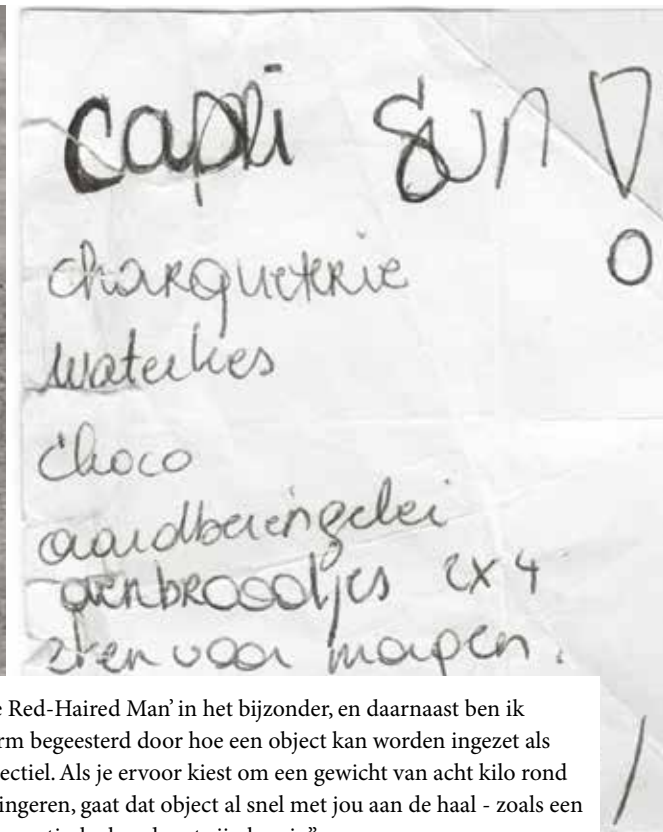 capri Sun!
charqueterie
waterkes
choco
aardbeiengelei
ovenbroodjes 2x4
eten voor morgen.
e Red-Haired Man’ in het bijzonder, en daarnaast ben ik
rm begeesterd door hoe een object kan worden ingezet als
ectiel. Als je ervoor kiest om een gewicht van acht kilo rond
ingeren, gaat dat object al snel met jou aan de haal - zoals een